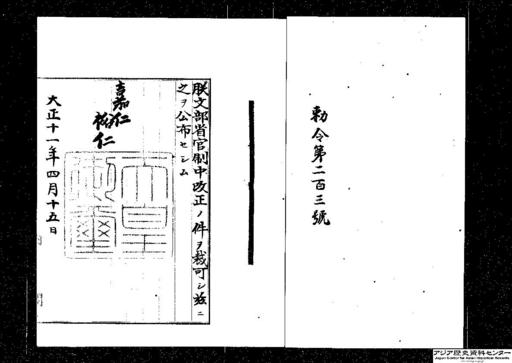 勅令第二百三號
朕文部省官制中改正ノ件ヲ裁可シ玆ニ
之ヲ公布セシム
嘉仁
裕仁
天皇
御璽
大正十一年四月十五日
アジア歴史資料センター
Japan Center for Asian Historical Records